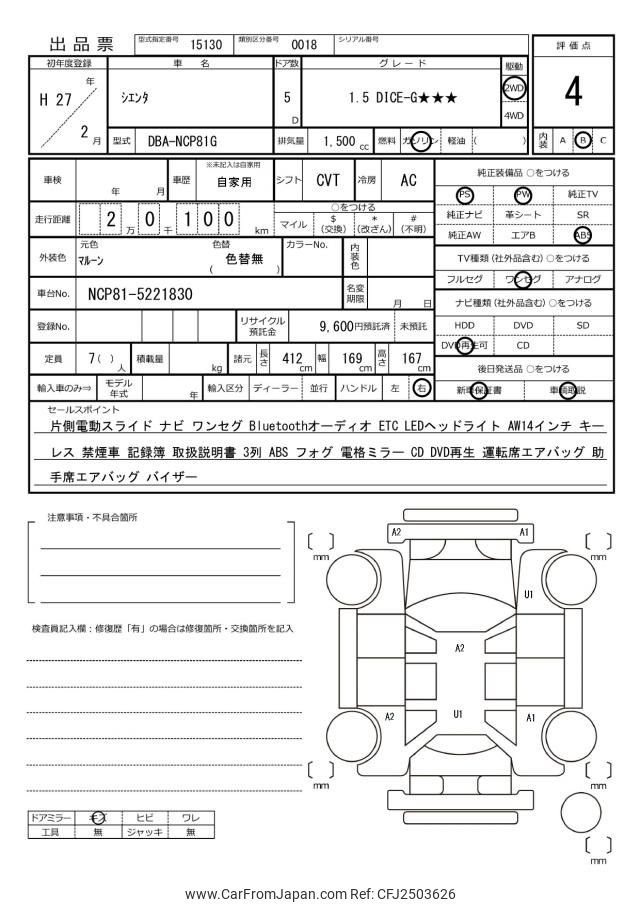 出品票 型式指定番号 15130 類別区分番号 0018 シリアル番号
評価点
4
内装 A B C
初年度登録 車名 ドア数 グレード 駆動
H 27 年 2 月
シエンタ
5 D
1.5 DICE-G★★★
2WD
4WD
型式 DBA-NCP81G 排気量 1,500 cc 燃料 ガソリン 軽油 ( )
車検 年 月 車歴 ※未記入は自家用 自家用 シフト CVT 冷房 AC
走行距離 2 万 0 千 1 0 0 km
○をつける
マイル $ (交換) * (改ざん) # (不明)
外装色 元色 マルーン 色替 ( 色替無 ) カラーNo. 内装色
車台No. NCP81-5221830 名変期限 月 日
登録No. リサイクル預託金 9,600円預託済 未預託
定員 7( ) 人 積載量 kg 諸元 長さ 412 cm 幅 169 cm 高さ 167 cm
輸入車のみ⇒ モデル年式 年 輸入区分 ディーラー 並行 ハンドル 左 右
純正装備品 ○をつける
PS PW 純正TV
純正ナビ 革シート SR
純正AW エアB ABS
TV種類 (社外品含む) ○をつける
フルセグ ワンセグ アナログ
ナビ種類 (社外品含む) ○をつける
HDD DVD SD
DVD再生可 CD
後日発送品 ○をつける
新車保証書 車輌取説
セールスポイント
片側電動スライド ナビ ワンセグ Bluetoothオーディオ ETC LEDヘッドライト AW14インチ キー
レス 禁煙車 記録簿 取扱説明書 3列 ABS フォグ 電格ミラー CD DVD再生 運転席エアバッグ 助
手席エアバッグ バイザー
注意事項・不具合箇所
検査員記入欄：修復歴「有」の場合は修復箇所・交換箇所を記入
ドアミラー キズ ヒビ ワレ
工具 無 ジャッキ 無
A2 A1
[ ] mm [ ] mm
U1
A2
A2 U1 A1
[ ] mm [ ] mm
[ ] mm
www.CarFromJapan.com Ref: CFJ2503626